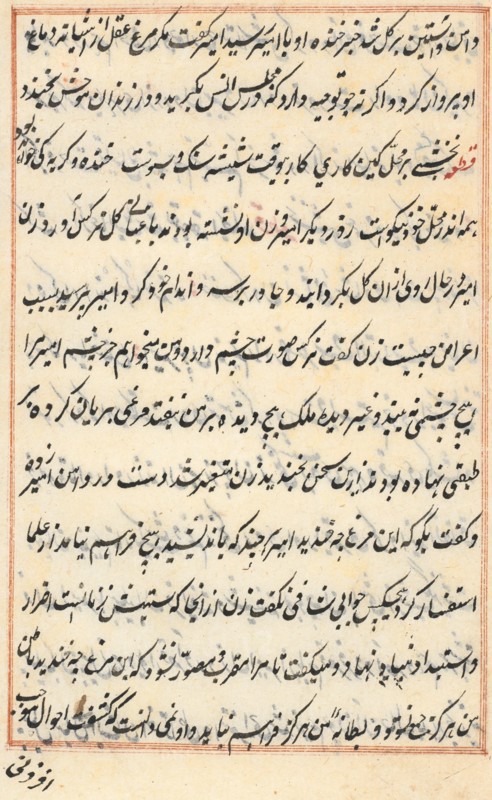 دامن داشتن بر گل شد خبر خنده او با امیر رسید امیر گفت مگر مرغ عقل از آشیانه دماغ
او پرواز کرد و اگر نه چو توجیه دارد که در مجلس انس بگرید و در زندان موحش بخندد
قطعه نخشبی بر محل کمین کاری کار بیوقت شیشه سنگ و سبوست خنده و گریه کی خوش بود
همه اندر محل خود نیکوست روز دیگر امیر و زن او نشسته بودند باغبانی گل نرگس آورد زن
امیر در حال روی از آن گل بگردانید و چادر بر سر و اندام خود کرد امیر پرسید سبب
اعراض چیست زن گفت نرگس صورت چشم دارد و من نمیخواهم جز چشم امیر مرا
هیچ چشمی نه بیند و غیر دیده ملک هیچ دیده بر من نیفتد مرغی بریان کرده بر
طبقی نهاده بودند ازین سخن بخندید زن متغیر شد و دست در دامن امیر زده
و گفت بگو که این مرغ چه خندید امیر هر چند که باندیشید هیچ فراهم نیامد از علما
استفسار کرد هیچکس جوابی شافی نگفت زن از آنجا که ستیزش زنانست اقرار
و استبداد بنیاد نهاد و میگفت تا مرا مقرر و مصور نشود که این مرغ چه خندید باطن
من هرگز جمع نشود و بطانه من هرگز فراهم نیاید و او نمی دانست که کشف احوال موجب
افزونی